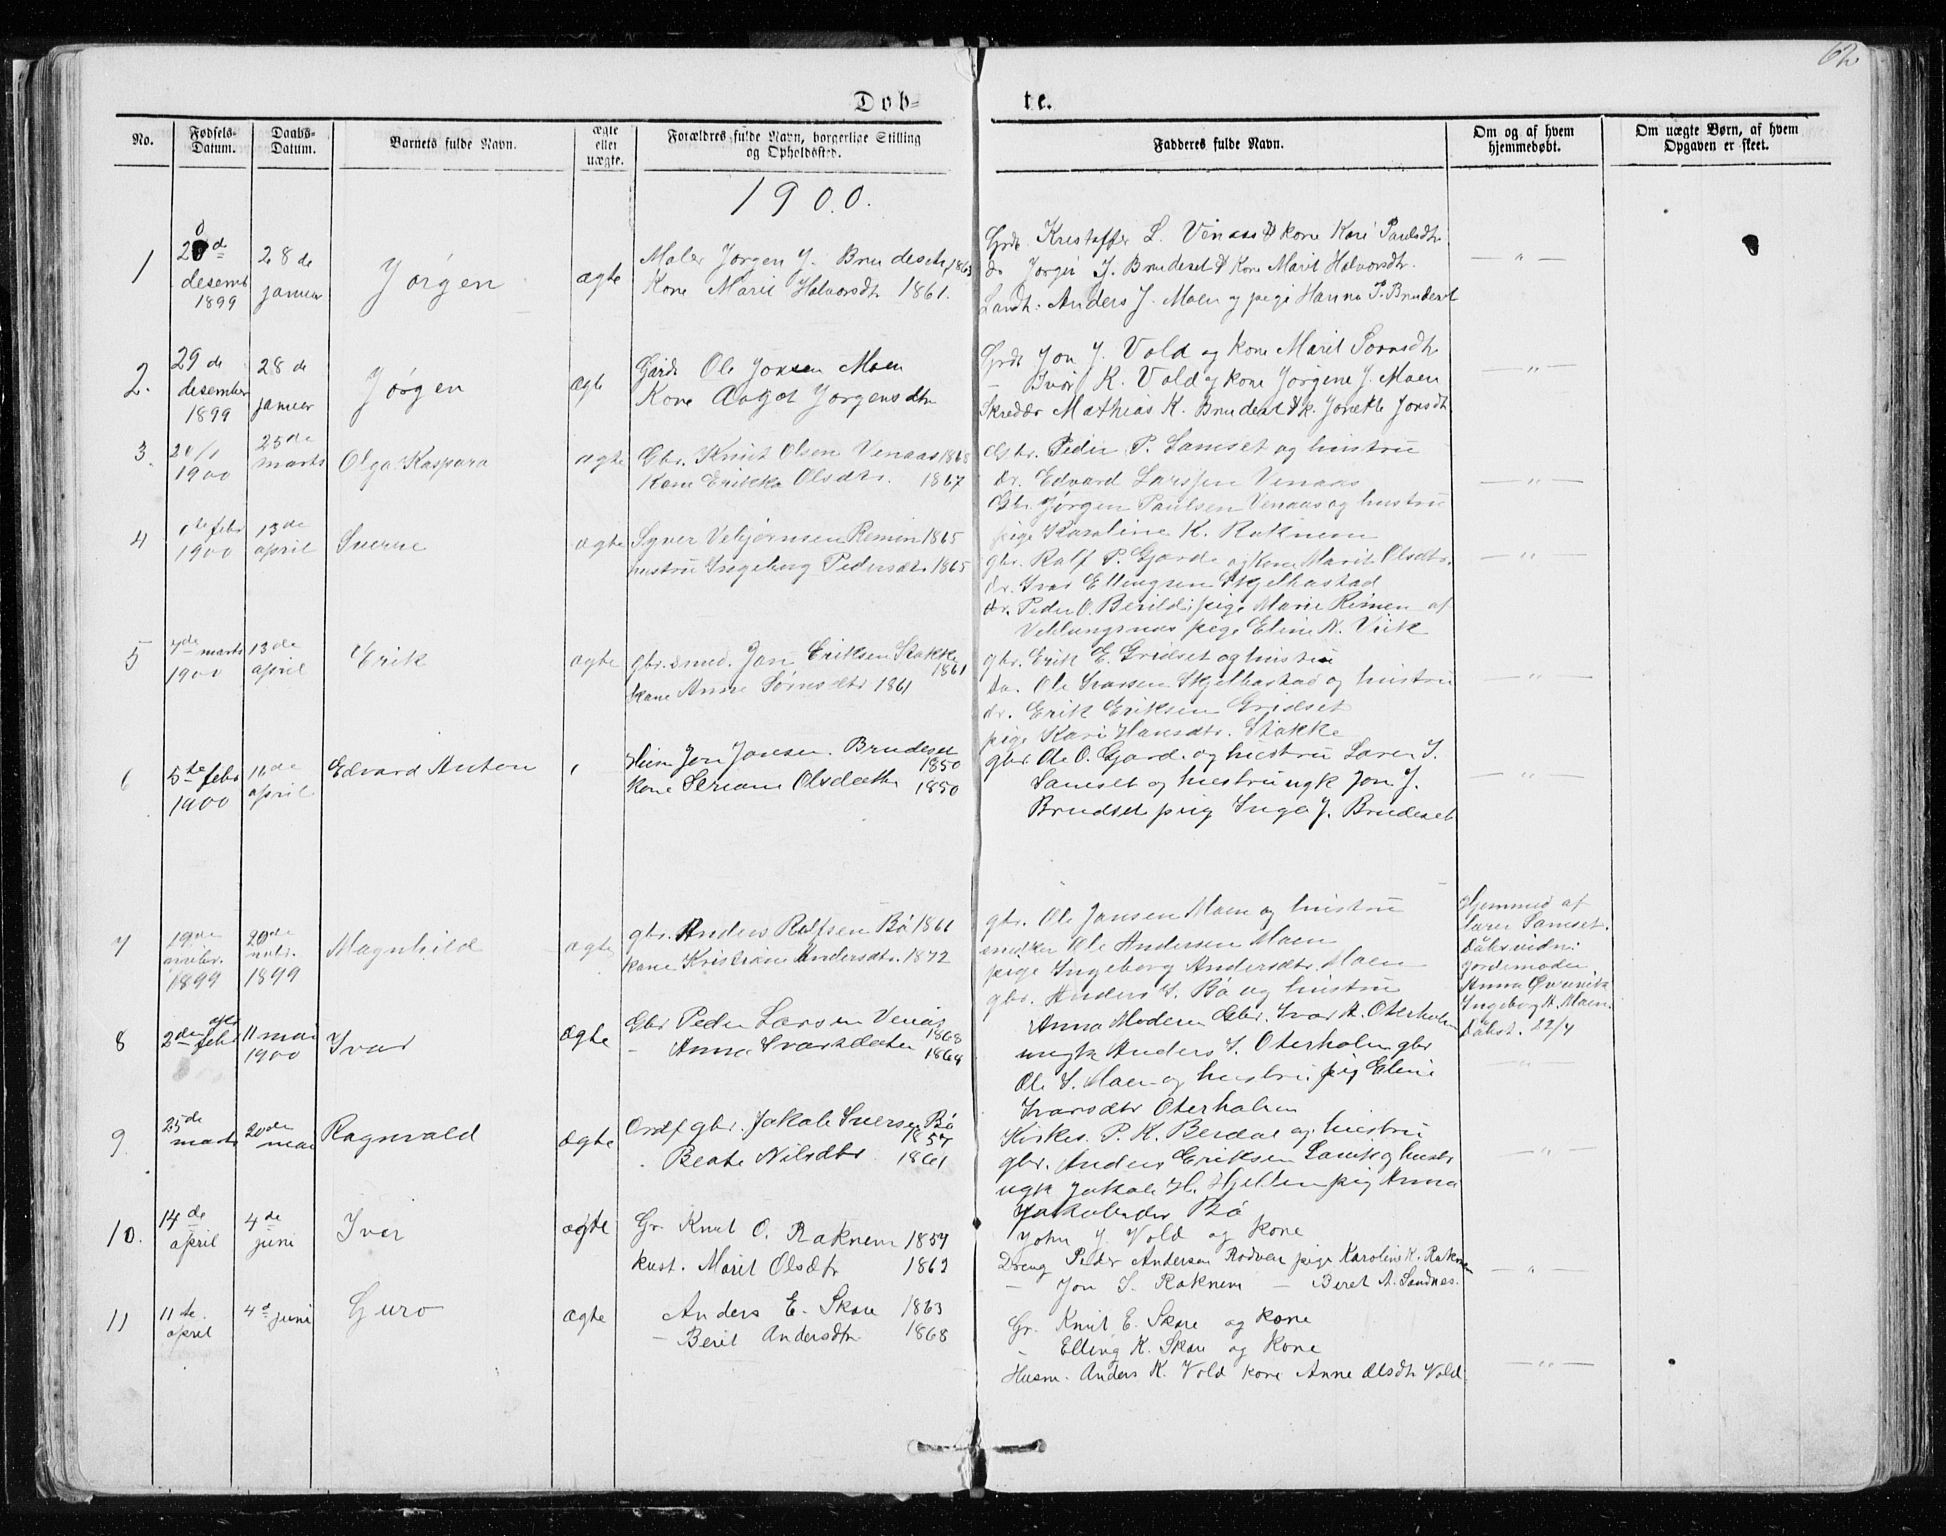 62
Døb- te.
No.
Fødsels-
Datum.
Daabs-
Datum.
Barnets fulde Navn.
ægte
eller
uægte.
Forældres fulde Navn, borgerlige Stilling
og Opholdssted.
Fadderes fulde Navn.
Om og af hvem
hjemmedøbt.
Om uægte Børn, af hvem
Opgaven er skeet.
1900.
1
desemb
1899
28 de
januar
Jørgen
ægte
Maler Jørgen J. Brudeset 1863
Kone Marit Halvorsdtr 1861.
Grdr. Kristoffer L. Venaas & kone Kari Paulsdtr
do Jørgen J. Brudeset & Kone Marit Halvorsdtr.
Landh. Anders J. Moen og pige Hanna P. Brudeset
— " —
2.
29 de
desember
1899
28 de
januar
Jørgen
ægte
Gårdr Ole Jonsen Moen
Kone Jørgensdtr
Grdr Jon J. Vold og kone Marit
— Ivor K. Vold og kone Jørgine J. Moen
Skredder Mathias K. Brudeset & k. Jonette Jonsdtr
— " —
3.
20/1
1900
25 de
marts
Olga Kaspara
ægte
Gbr. Knut Olsen Venaas 1868
Kone Erikka Olsdtr. 1867
Gbr. Peder P. Samset og hustru
dr. Edvard Larssen Venaas
Gbr. Jørgen Paulsen Venaas og hustru
pige Karoline K. Raknem
— " —
4
1ste febr
1900
13 de
april
Sverre
ægte
Syver Vebjørnsen Remin 1865
hustru Ingeborg Pedersdtr 1865
gbr. Ralf P. Gjerde og kone Marit Olsdtr.
dr. Ivar Ellingsen Skjelbostad
dr. Peder O. Berild: pige Marie Rimen af
Veblungsnæs pige Eline N. Viik
— " —
5
4de marts
1900
13 de
april
Erik
ægte
gbr. smed. Jon Eriksen Stokke
1861
kone Anne Sørnsdtr 1861
gbr. Erik E. Gridset og hustru
Do. Ole Ivarsen Skjelbostad og hustru
dr. Erik Eriksen Gridset
pige Kari Hansdtr. Stokke
— " —
6
5te febr
1900
11 de
april
Edvard Anton
Jon Jonsen. Brudeset
1850
kone Seriane Olsdatter 1850
gbr Ole O. Gjerde og hustru Lærer I.
Samset og hustru ugk Jon J.
Brudset pig Inga J. Brudeset
— " —
7
19de
novbr.
1899
20de
novbr.
1899
Magnhild
ægte
gbr. Anders Ralfsen Bø 1861
kone Kristiane Andersdtr. 1872
gbr. Ole Jonsen Moen og hustru
snedker Ole Andersen Moen
pige Ingeborg Andersdtr. Moen
gbr. Anders I. Bø og hustru
Hjemmed af
lærer Samset.
Dåbsvidni:
jordemoder
Anna
Ingeborg A. Moen
Dåbst. 22/4
8
2den febr
11 mai
1900
Ivar
ægte
Gbr Peder Larsen Venås
1868
— Anna Ivarsdatter 1864
Anna Moderen Gbr. Ivar A. Oterholm
ungk Anders I. Oterholm gbr
Ole I. Moen og hustru pig Eline
Ivarsdtr Oterholm
— " —
9
25de
marts
20de
mai
Ragnvald
ægte
Ordf gbr. Jakob Sversen Bø
1857
Beate Nilsdtr. 1861
Kirkes. P. K. Berdal og hustru
gbr. Anders Eriksen Samset og hustr
ugk Jakob H. Hjelten pig Anna
Jakobsdtr Bø
— " —
10.
14 de
april
4 de
juni
Ivar
ægte
Gr. Knut O. Raknem 1857
hust. Marit Olsdtr 1862
John J. Vold og kone
Dreng Peder Andersen Rødven pige Karoline K. Raknem
— Jon S. Raknem — Beret A. Sandnes.
— " —
11
11te.
april
4 d juni
Guro
ægte
Anders E. Skare 1863
— Berit Andersdtr 1868
Gr. Knut E. Skare og kone
— Elling K. Skare og kone
Husm. Anders K. Vold kone Anne Olsdtr Vold
— " —